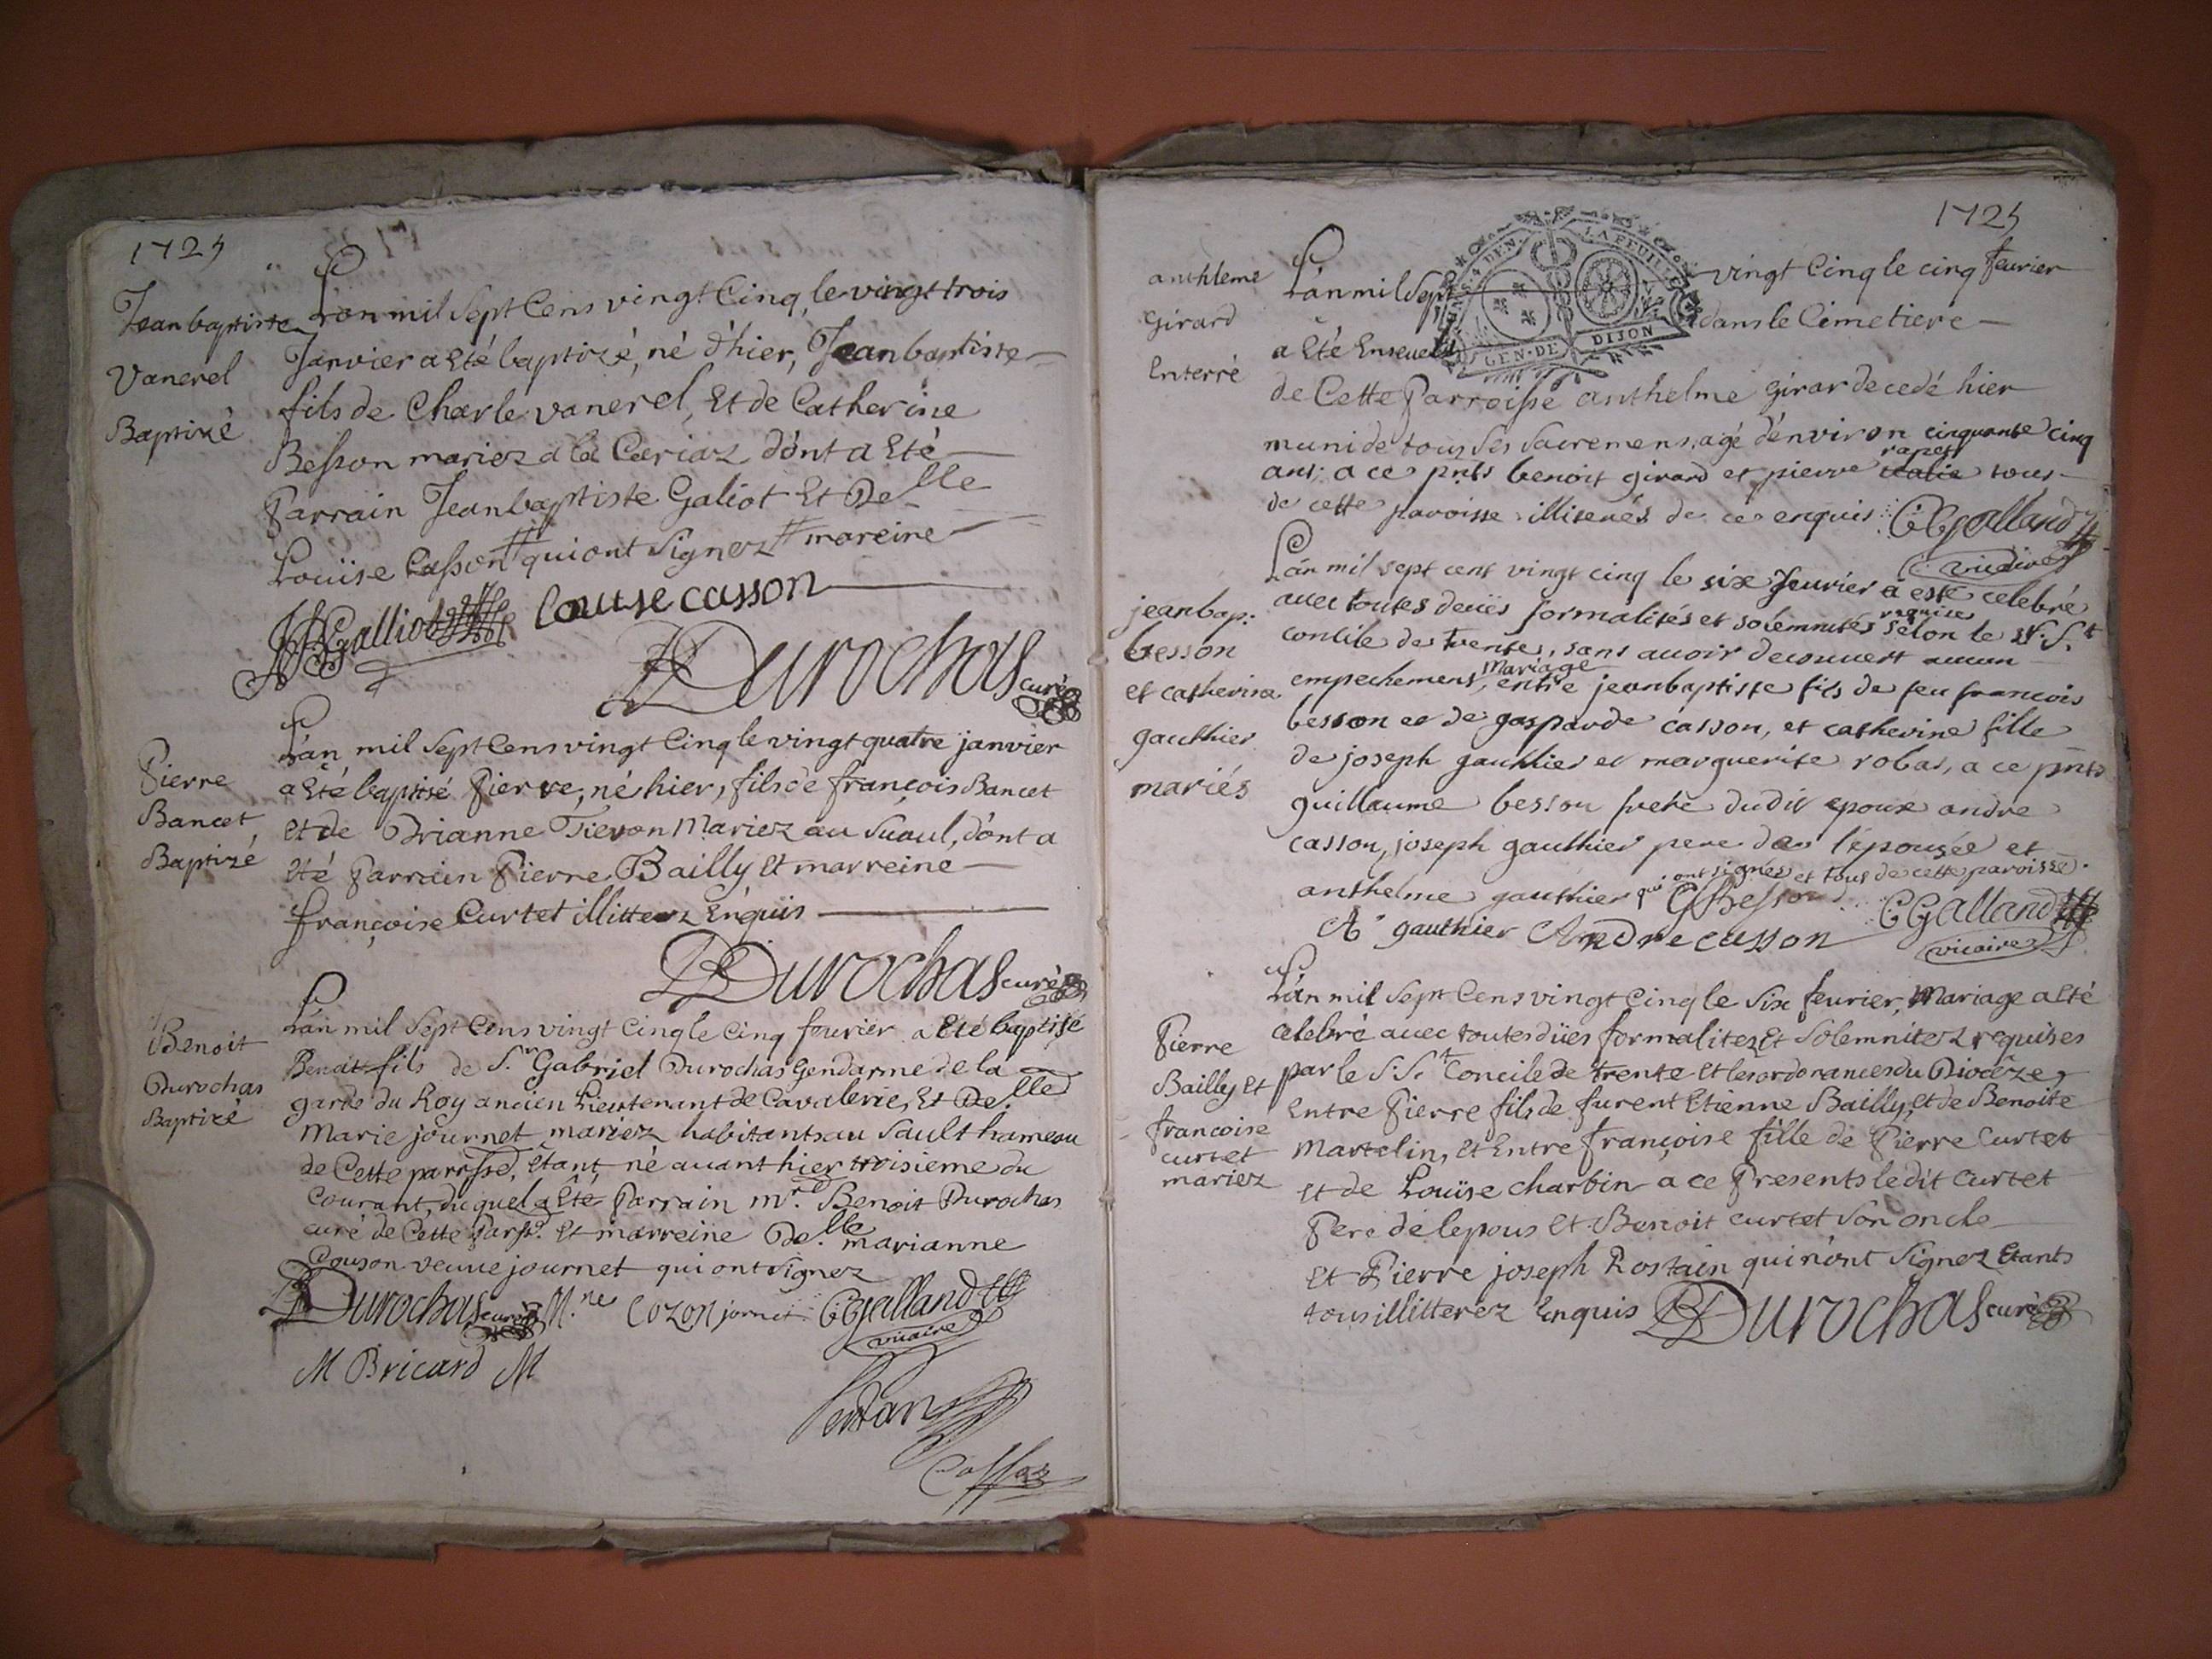 1725
Jean baptiste
Vanerel
Baptizé
L'an mil Sept Cens vingt Cinq, le vingt trois
Janvier a Eté baptizé, né d'hier, Jean baptiste
fils de Charle vanerel, Et de Catherine
Besson mariez a la Cariaz dont a Eté
Parrain Jean baptiste Galiot Et De.lle
Louïse Casson # qui ont Signez # mareine
JB Galliot Louise casson
B Durochas curé
Pierre
Bancet
Baptizé
L'an mil Sept Cens vingt Cinq le vingt quatre janvier
a Eté baptisé Pierre, né hier, fils de françois Bancet
Et de Drianne Tievon Mariez au Saoul, dont a
Eté Parrain Pierre Bailly Et marreine
françoise Curtet illitterz Enquis
B Durochas curé
Benoit
Durochas
Baptizé
L'an mil Sept Cens vingt Cinq le Cinq feurier a Eté baptisé
Benoit fils de S.r Gabriel Durochas Gendarme de la
garde du Roy ancien Lieutenant de Cavalerie, Et De.lle
Marie journet mariez habitants au Sault hameau
de Cette parrsse, Etant né auant hier troisieme du
Courant, duquel a Eté Parrain m.re Benoit Durochas
curé de Cette Parsse. Et marreine De.lle marianne
Couson veuue journet qui ont signez
B Durochas curé M.ne Cozon jornet CGalland
vicaire
M Bricard M
1725
anthleme
Girard
Enterré
L'an mil Sept vingt Cinq le cinq feurier
GEN. DE DIJON
a Eté Enseueli dans le Cimetiere
de Cette Parroisse anthelme girar decedé hier
muni de tous ses sacremens, agé d'environ cinquante cinq
rapet
ans; a ce pnts benoit girard et pierre tous
de cette paroisse illiterés de ce enquis CGalland
vicaire
jean bap:
besson
et catherine
gauthier
mariés
L'an mil sept cent vingt cinq le six feurier a esté celebré
auec toutes deuës formalités et solemnités requises selon le st. S.t
concile de trente, sans auoir decouuert aucun
empechement, Mariage entre jean baptiste fils de feu francois
besson et de gasparde casson, et catherine fille
de joseph gauthier et marguerite robat, a ce pnts
guillaume besson frere dudit epoux andre
casson, joseph gauthier pere de l'épousée et
anthelme gauthier qui ont signés et tous de cette paroisse.
GBesson CGalland
A gauthier Andre casson vicaire
Pierre
Bailly Et
francoise
curtet
mariez
L'an mil Sept Cens vingt Cinq le Six feurier, Mariage a Eté
celebré auec toutes dües formalitez Et Solemnitez requises
par le S.S.t Concile de trente Et les ordonances du Diocêze,
Entre Pierre fils de furent Etienne Bailly, Et de Benoite
Martelin, Et Entre françoise fille de Pierre Curtet
Et de Louïse charbin a ce Presents ledit Curtet
Pere de lepous Et Benoit curtet Son oncle
Et Pierre joseph Rostain qui n'ont Signez Etants
tous illitterez Enquis B Durochas curé